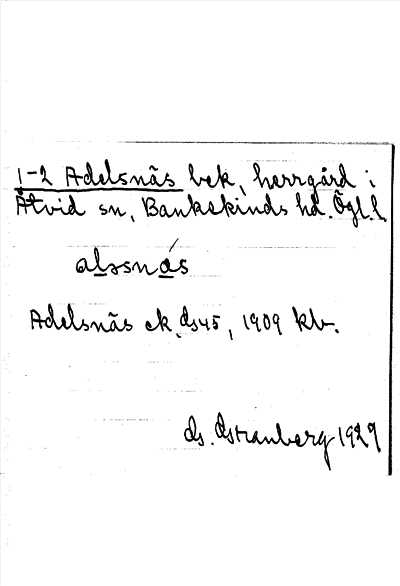 1-2 Adelsnäs bek, herrgård i
Åtvid sn, Bankekinds hd. Ögl.l.
alssnäs
Adelsnäs ek. ds 45, 1909 kb.
ds. Stranberg 1929